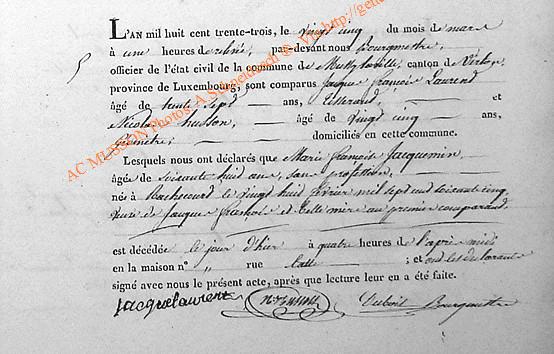 L'AN mil huit cent trente-trois, le vingt cinq du mois de mars
à une heures de relevée, par-devant nous Bourgmestre,
officier de l'état civil de la commune de canton de Virton,
province de Luxembourg, sont comparus Jacques françois Laurent
âgé de trente sept ans, tisserand, et
Nicolas husson, âgé de vingt cinq ans,
domiciliés en cette commune.
Lesquels nous ont déclarés que Marie françoise Jacquemin,
âgée de soixante huit ans, sans profession,
né à Rachecourt le vingt huit février mil sept cent soixante cinq
veuve de Jacques françois et mère au premier comparant
est décédée le jour d'hier à quatre heures de l'après midi
en la maison n° „ rue ; et ont les déclarants
signé avec nous le présent acte, après que lecture leur en a été faite.
Jacque Laurent Bourgmestre
AC MUSSON Photos: A Schneidesch @ Via http://gene
5